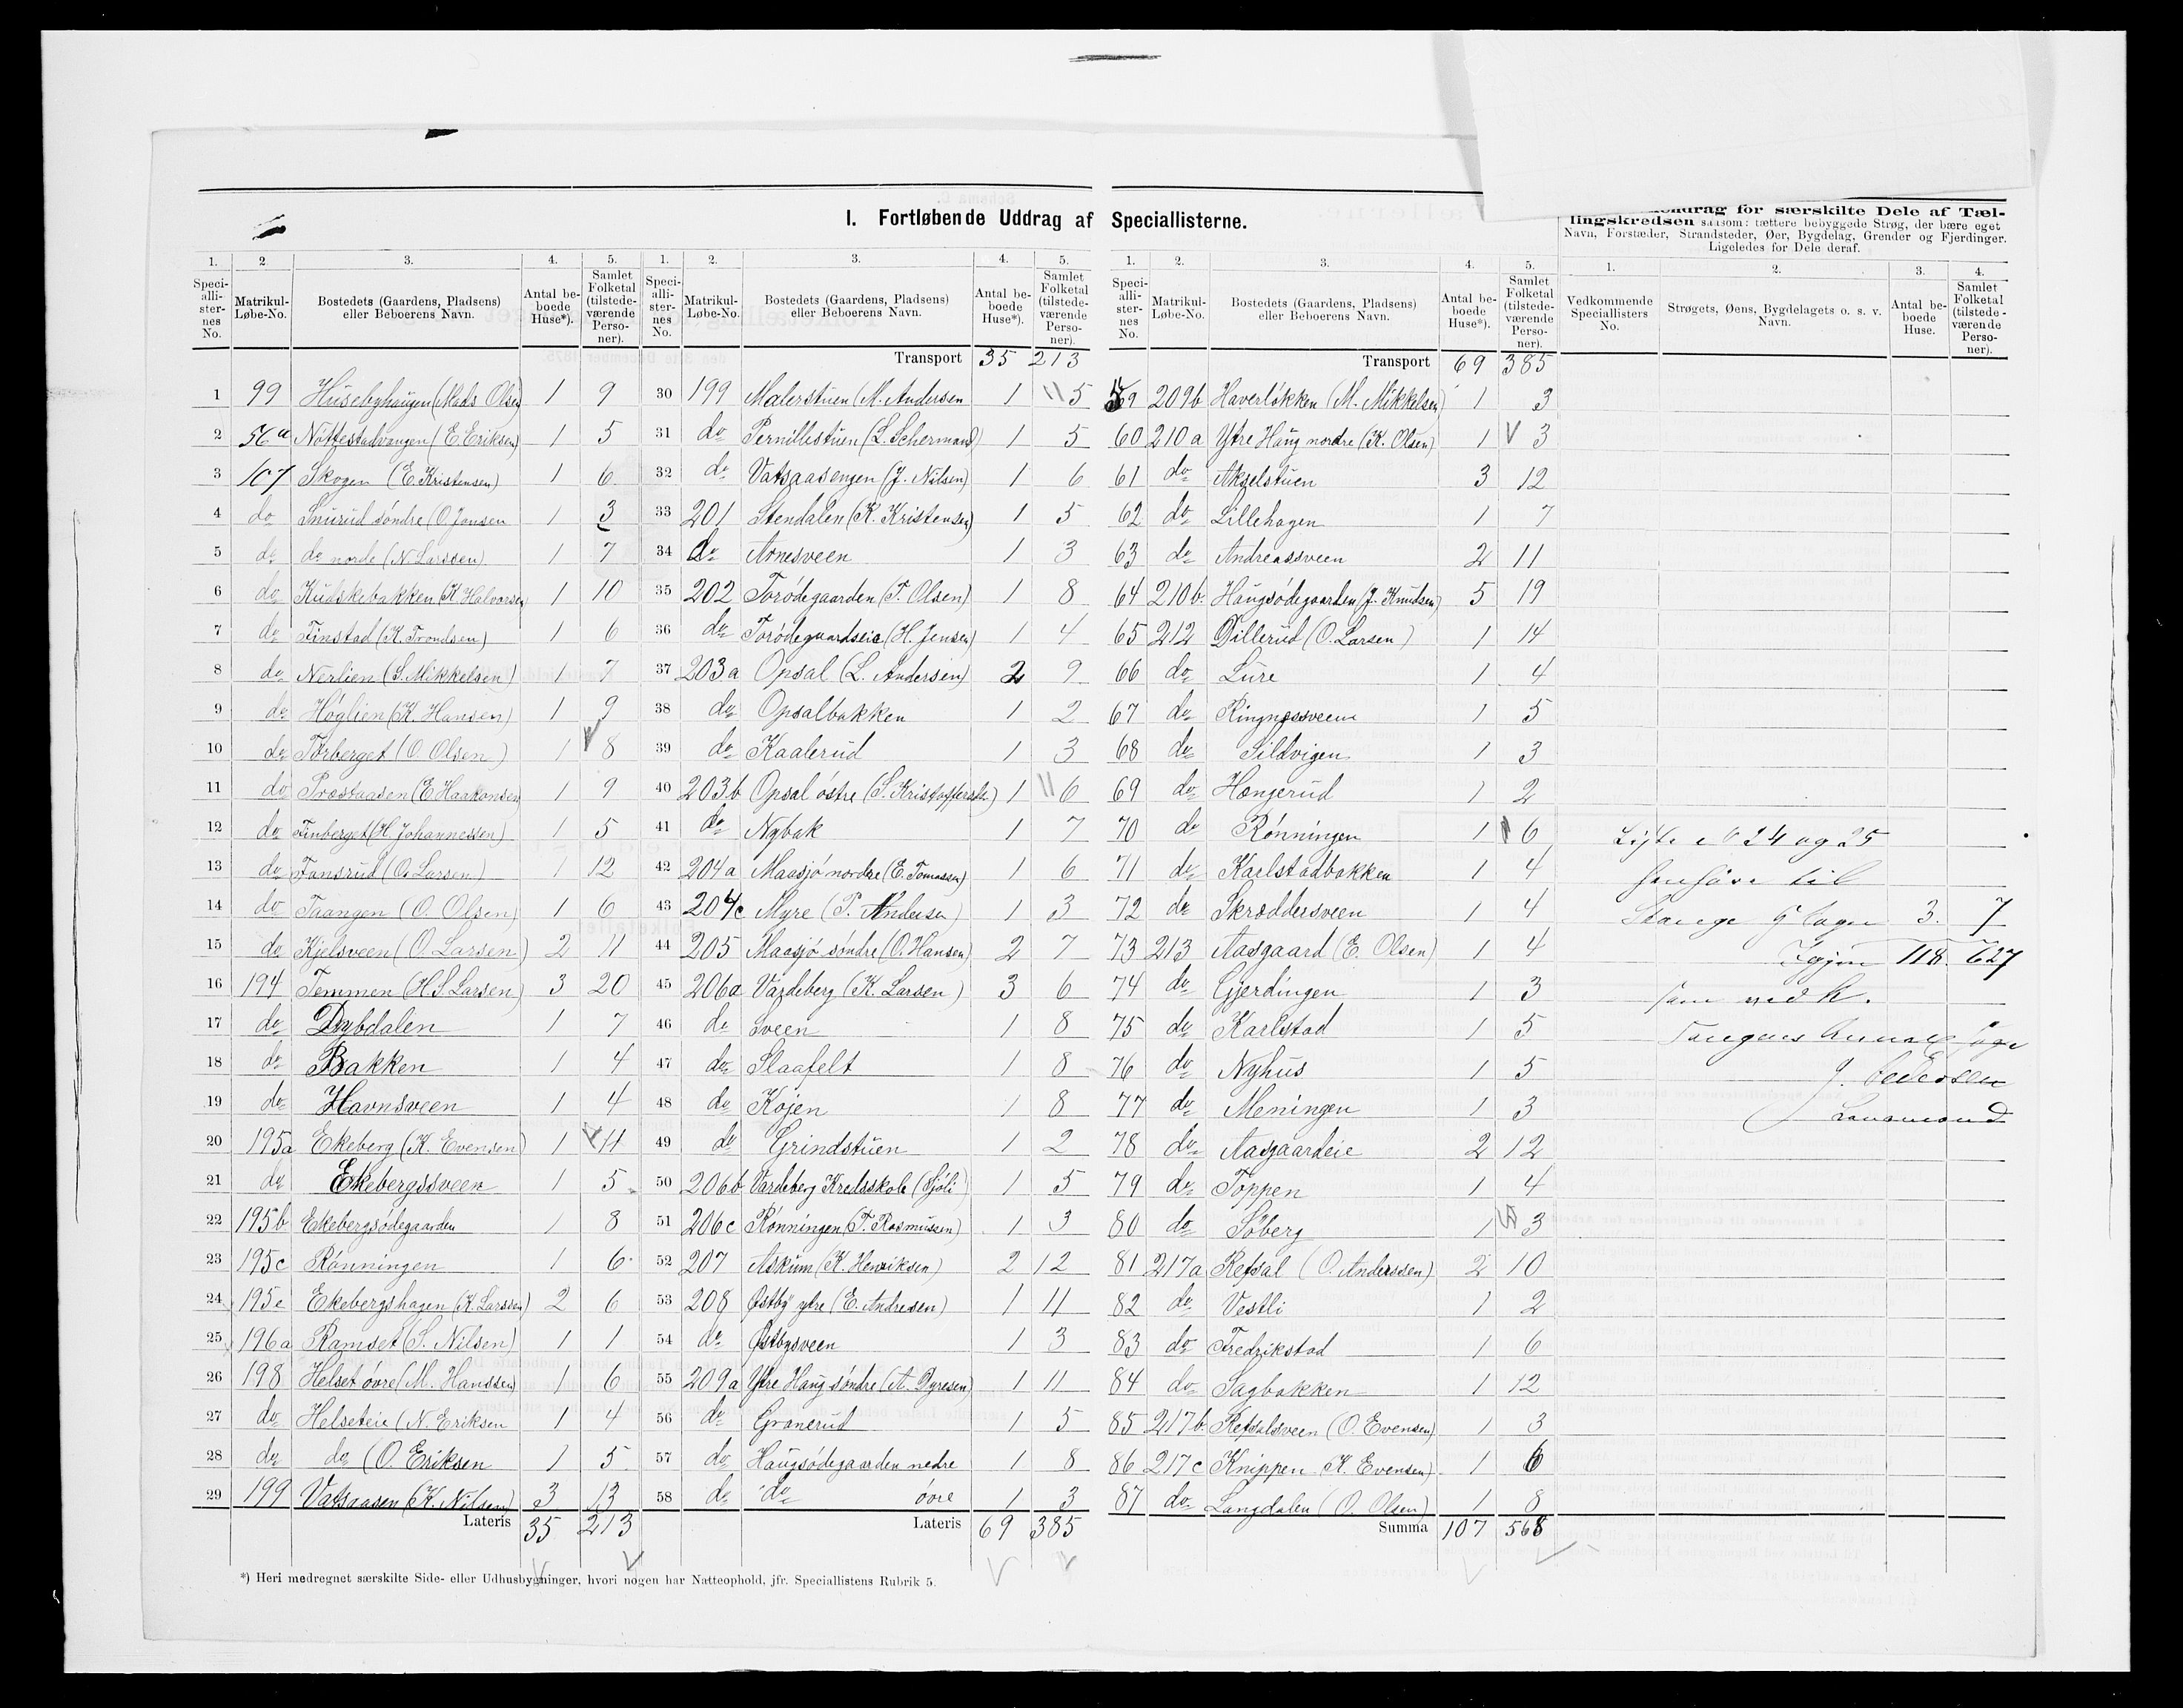 I. Fortløbende Uddrag af Speciallisterne.
1. 2. 3. 4. 5.
Speciallisternes No. Matrikul-Løbe-No. Bostedets (Gaardens, Pladsens) eller Beboerens Navn. Antal beboede Huse*). Samlet Folketal (tilstedeværende Personer).
1 99 Husebyhaugen (Mads Olsen 1 9
2 56a Nøttestadvangen (E. Eriksen) 1 5
3 107 Skogen (E. Kristensen) 1 6
4 do Snurud søndre (O. Jensen 1 3
5 do do nordre (N. Larssen) 1 7
6 do Kudskebakken (K. Halvorsen) 1 10
7 do Finstad (K. Trondsen) 1 6
8 do Nerlien (S. Mikkelsen) 1 7
9 do Høglien (K. Hansen) 1 9
10 do Torberget (O. Olsen) 1 8
11 do Prøstaasen (E. Haakonsen 1 9
12 do Finberget (H. Johannessen) 1 5
13 do Fansrud (O. Larsen) 1 12
14 do Taangen (O. Olsen) 1 6
15 do Kjelsveen (O. Larsen) 2 11
16 194 Temmen (H. S. Larsen) 3 20
17 do Dybdalen 1 7
18 do Bakken 1 4
19 do Havnsveen 1 4
20 195a Ekeberg (K. Evensen) 1 11
21 do Ekebergssveen 1 5
22 195b Ekebergsødegaarden 1 8
23 195c Rønningen 1 6
24 195e Ekebergshagen (K. Larssen) 2 6
25 196a Ramset (S. Nilsen) 1 1
26 198 Helset øvre (M. Hanssen) 1 6
27 do Helseteie (N. Eriksen 1 4
28 do do (O. Eriksen 1 5
29 199 Vatsaasen (K. Nilsen) 3 13
Lateris 35 213
1. 2. 3. 4. 5.
Speciallisternes No. Matrikul-Løbe-No. Bostedets (Gaardens, Pladsens) eller Beboerens Navn. Antal beboede Huse*). Samlet Folketal (tilstedeværende Personer).
Transport 35 213
30 199 Malerstuen (M. Andersen 1 5
31 do Pernillestuen (L. Schermand) 1 5
32 do Vatsaasengen (J. Nilsen) 1 6
33 201 Stendalen (K. Kristensen) 1 5
34 do Arnesveen 1 3
35 202 Torødegaarden (T. Olsen) 1 8
36 do Torødegaardseie (H. Jensen) 1 4
37 203a Opsal (L. Andersen) 2 9
38 do Opsalbakken 1 2
39 do Kaalerud 1 3
40 203b Opsal østre (S. Kristoffersen) 1 6
41 do Nybak 1 7
42 204a Maasjø nordre (E. Tomassen) 1 6
43 204c Myre (P. Andersen) 1 3
44 205 Maasjø søndre (O. Hansen) 2 7
45 206a Vardeberg (K. Larsen) 3 6
46 do Sveen 1 8
47 do Slaafelt 1 8
48 do Kojen 1 8
49 do Grindstuen 1 2
50 206b Vardeberg Kredsskole (Sjøli) 1 5
51 206c Rønningen (T. Rasmussen) 1 3
52 207 Askum (K. Henriksen) 2 12
53 208 Østby ytre (E. Andresen) 1 11
54 do Østbysveen 1 3
55 209a Ytre Haug søndre (A. Dyresen) 1 11
56 do Granerud 1 5
57 do Haugsødegaarden nedre 1 8
58 do do øvre 1 3
Lateris 69 385
1. 2. 3. 4. 5.
Speciallisternes No. Matrikul-Løbe-No. Bostedets (Gaardens, Pladsens) eller Beboerens Navn. Antal beboede Huse*). Samlet Folketal (tilstedeværende Personer).
Transport 69 385
59 209b Haverløkken (M. Mikkelsen) 1 3
60 210a Ytre Haug nordre (K. Olsen) 1 3
61 do Akselstuen 3 12
62 do Lillehagen 1 7
63 do Andreassveen 2 11
64 210b. Haugsødegaarden (J. Knudsen) 5 19
65 212 Dillerud (O. Larsen) 1 14
66 do Lure 1 4
67 do Ringnessveen 1 5
68 do Sildvigen 1 3
69 do Hengerud 1 2
70 do Rønningen 1 6
71 do Karlstadbakken 1 4
72 do Skræddersveen 1 4
73 213 Aasgaard (E. Olsen) 1 4
74 do Gjerdingen 1 3
75 do Karlstad 1 5
76 do Nyhus 1 5
77 do Meningen 1 3
78 do Aasgaardeie 2 12
79 do Toppen 1 4
80 do Søberg 1 3
81 217a Refsal (O. Anderssen) 2 10
82 do Vestli 1 2
83 do Fredrikstad 1 6
84 do Sagbakken 1 12
85 217b. Refsalsveen (O. Evensen) 1 3
86 217c Knippen K. Evensen) 1 6
87 do Langdalen (O. Olsen) 1 8
Summa 107 568
drag for særskilte Dele af Tællingskredsen saasom: tættere bebyggede Strøg, der bære eget
Navn, Forstæder, Strandsteder, Øer, Bygdelag, Grender og Fjerdinger.
Ligeledes for Dele deraf.
1. 2. 3. 4.
Vedkommende Speciallisters No. Strøgets, Øens, Bygdelagets o. s. v. Navn. Antal beboede Huse. Samlet Folketal (tilstedeværende Personer).
Liste No 24 og 25
henhøre til
Stange 3. 7
Igjen 118. 627
som ved k.
Tangens
J. Pedersen
Lensmand
*) Heri medregnet særskilte Side- eller Udhusbygninger, hvori nogen har Natteophold, jfr. Speciallistens Rubrik 5.